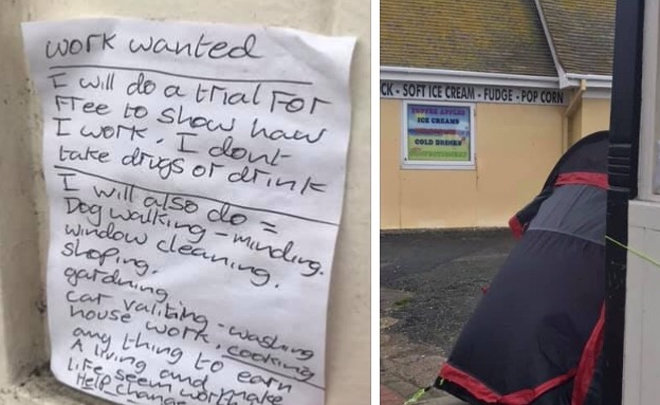 work wanted
I will do a trial For
Free to show how
I work. I dont
take drugs or drink
I will also do =
Dog walking - minding.
window cleaning.
shoping.
gardning.
car valiting - washing
house work, cooking
any thing to earn
A living and make
life seem worth
Help change
CK - SOFT ICE CREAM - FUDGE - POP CORN
TOFFEE APPLES
ICE CREAMS
COLD DRINKS